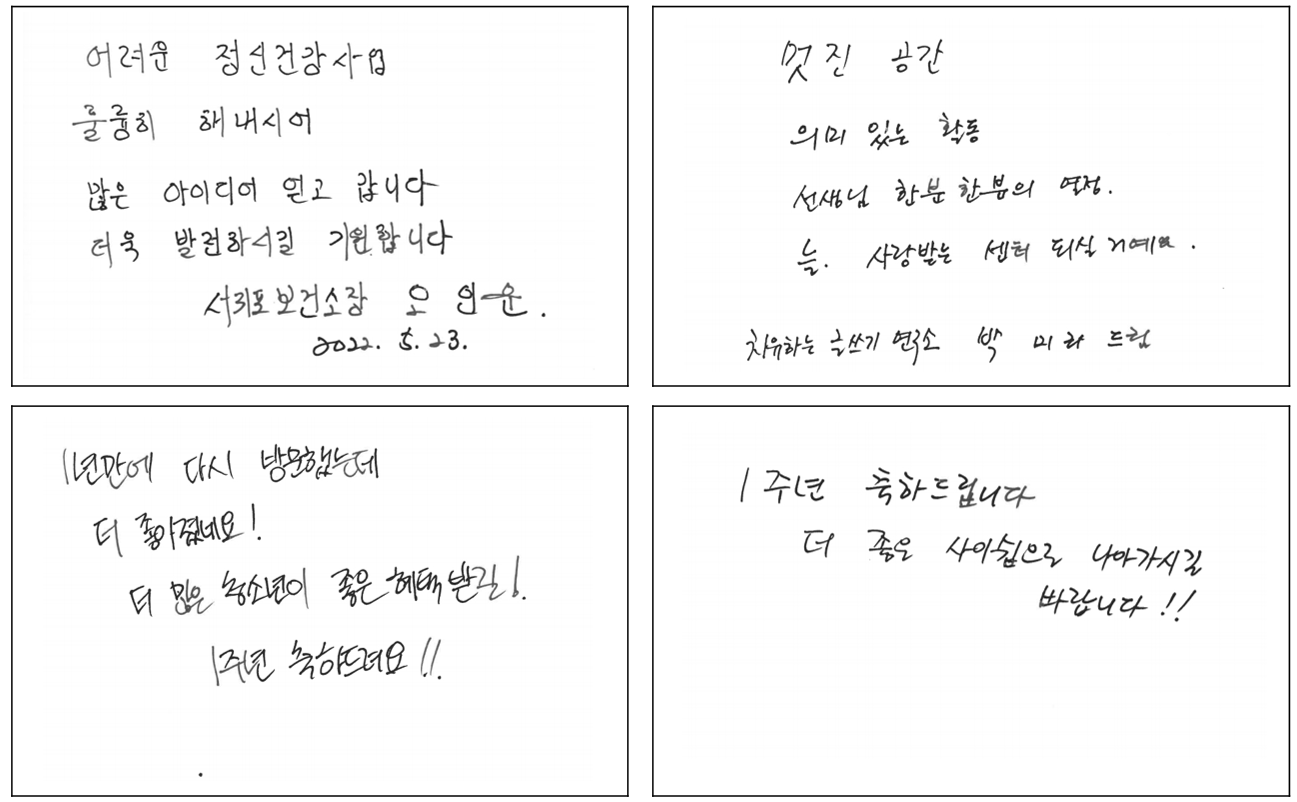 어려운 정신건강사업
훌륭히 해내시어
많은 아이디어 얻고 갑니다
더욱 발전하시길 기원합니다
서귀포보건소장 오 인순.
2022. 5. 23.
멋진 공간
의미 있는 활동
선생님 한분한분의 열정.
늘. 사랑받는 센터 되실거예요.
치유하는 글쓰기 연구소 박 미라 드림
1년만에 다시 방문했는데
더 좋아졌네요!
더 많은 청소년이 좋은 혜택받길!.
1주년 축하드려요!!.
1주년 축하드립니다
더 좋은 사이쉼으로 나아가시길
바랍니다!!